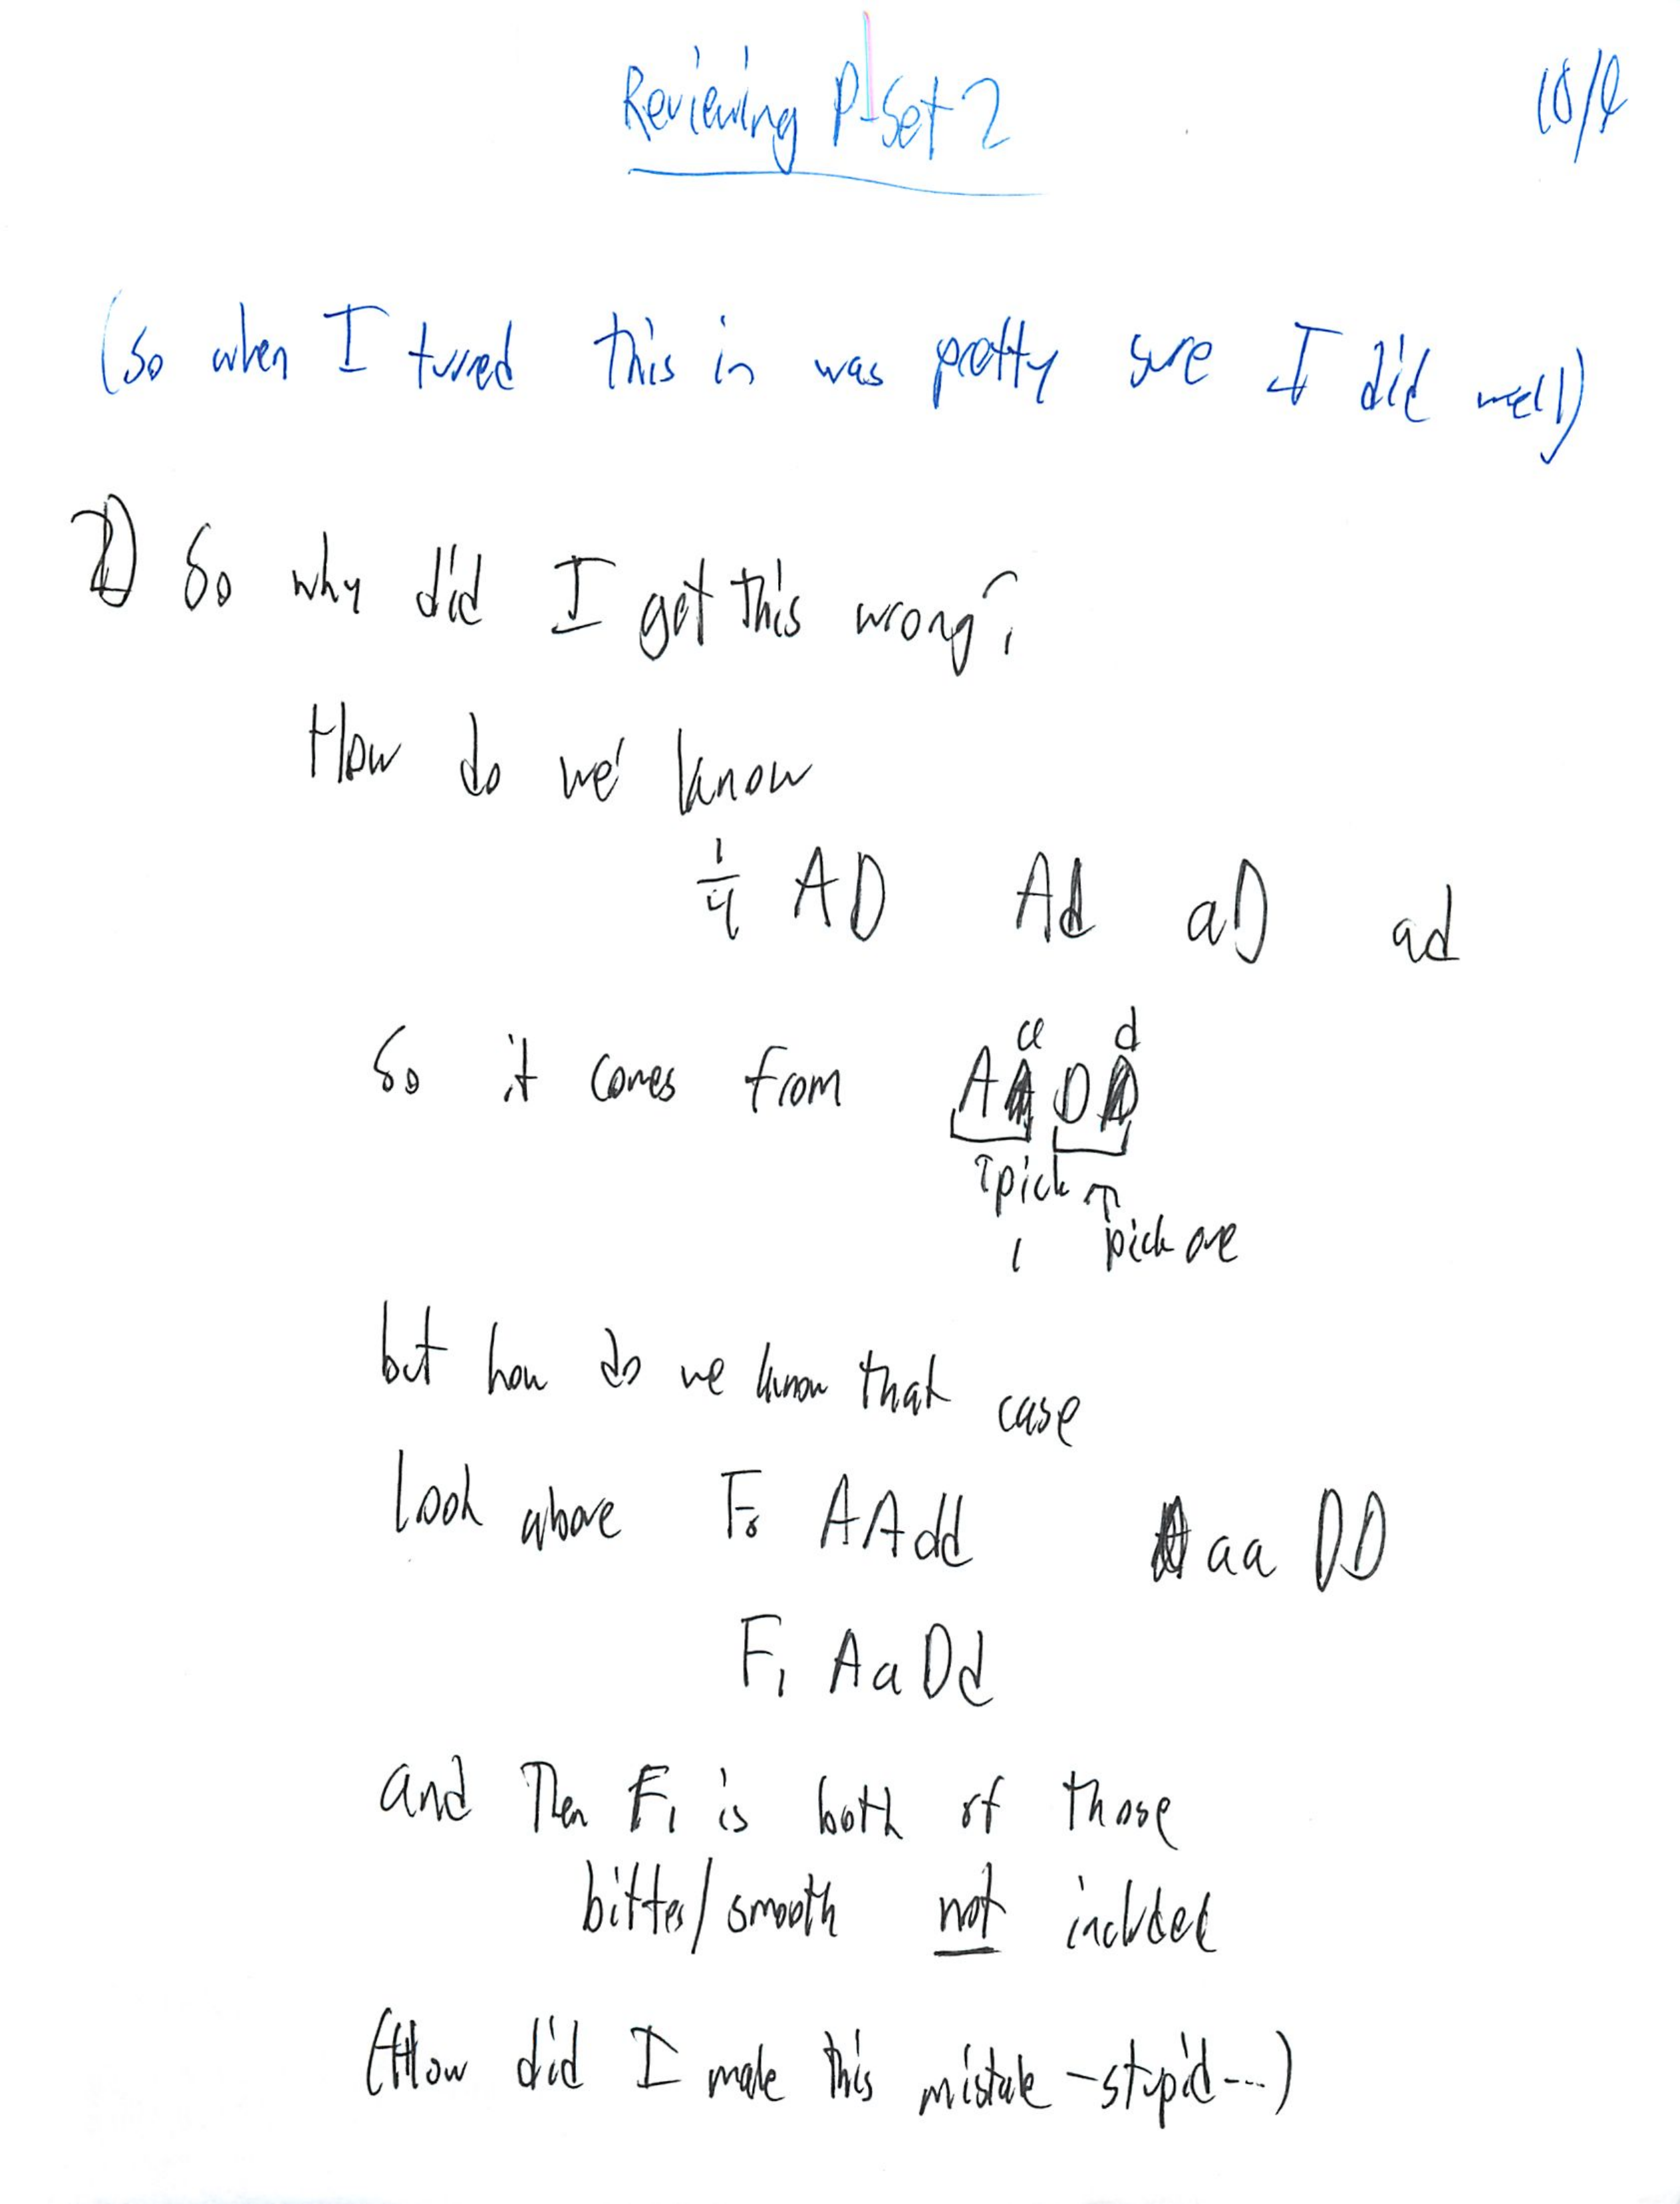 Reviewing P-Set 2
10/4
(so when I turned this in was pretty sure I did well)
1) So why did I get this wrong?
How do we know
1/4 AD Ad aD ad
a d
So it comes from A D
↑pick ↑
1 pick one
but how do we know that case
Look above F0 AAdd aa DD
F1 AaDd
and Then F1 is both of those
bitter/smooth not included
(How did I make this mistake - stupid---)